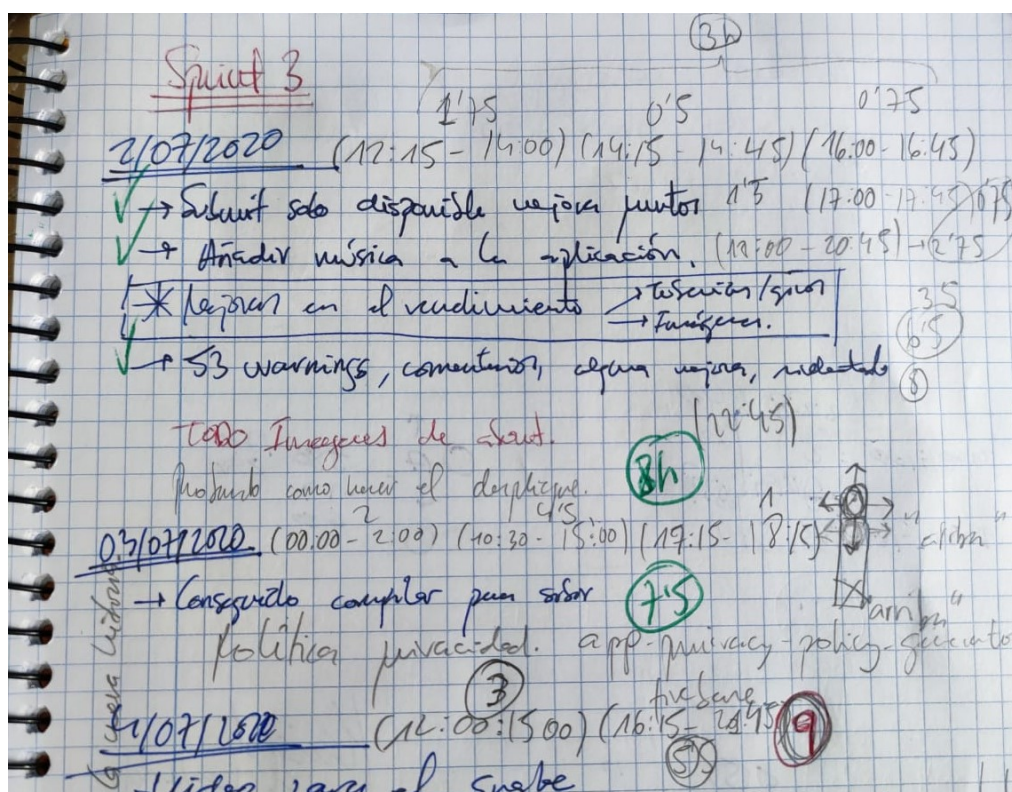 3h
Sprint 3
1'75 0'5 0'75
2/07/2020 (12:15 - 14:00) (14:15 - 14:45) (16:00 - 16:45)
→ Submit solo disponible mejora puntos 1'5 (17:00 - 17:45) 0'75
→ Añadir música a la aplicación. - 20:45) → 2'75
* Mejoras en el rendimiento → /giros
→ Imágenes.
3'5
6'5
→ 53 warnings, comentarios, alguna mejora,
8
(22:45)
TODO Imágenes de about.
Probando como hacer el despliegue. 8h
2 4'5 1
03/07/2020. (00:00 - 2:00) (10:30 - 15:00) (17:15 - 18:15)
→ Conseguido compilar para 7'5
"arriba"
Política privacidad. app-privacy-policy-generato
3 firebase
4/07/2020 (12:00 : 15:00) (16:15 - 9
5'5
el